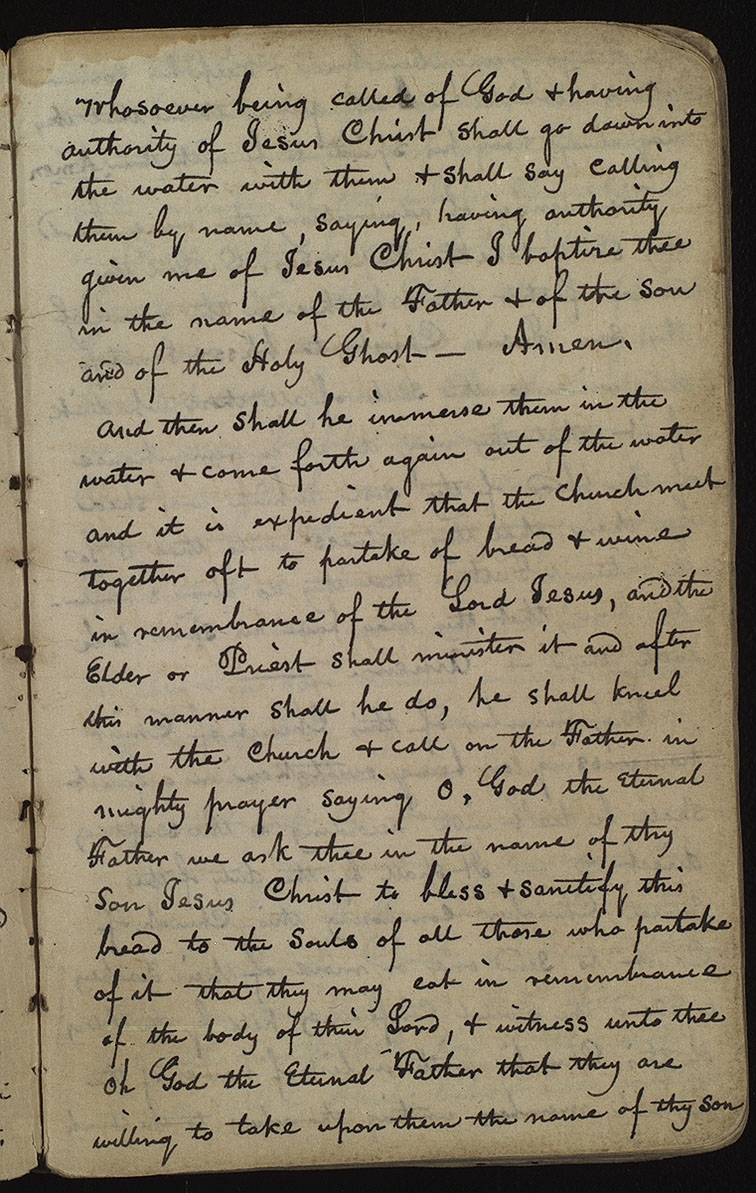 Whosoever being called of God & having
authority of Jesus Christ shall go down into
the water with them & shall say calling
them by name, saying, having authority
given me of Jesus Christ I baptize thee
in the name of the Father & of the Son
and of the Holy Ghost — Amen.
and then shall he immerse them in the
water & come forth again out of the water
and it is expedient that the Church meet
together oft to partake of bread & wine
in remembrance of the Lord Jesus, and the
Elder or Priest shall minister it and after
this manner shall he do, he shall kneel
with the Church & call on the Father in
mighty prayer saying O, God the Eternal
Father we ask thee in the name of thy
Son Jesus Christ to bless & sanctify this
bread to the Souls of all those who partake
of it that they may eat in remembrance
of the body of their Lord, & witness unto thee
Oh God the Eternal Father that they are
willing to take upon them the name of thy Son